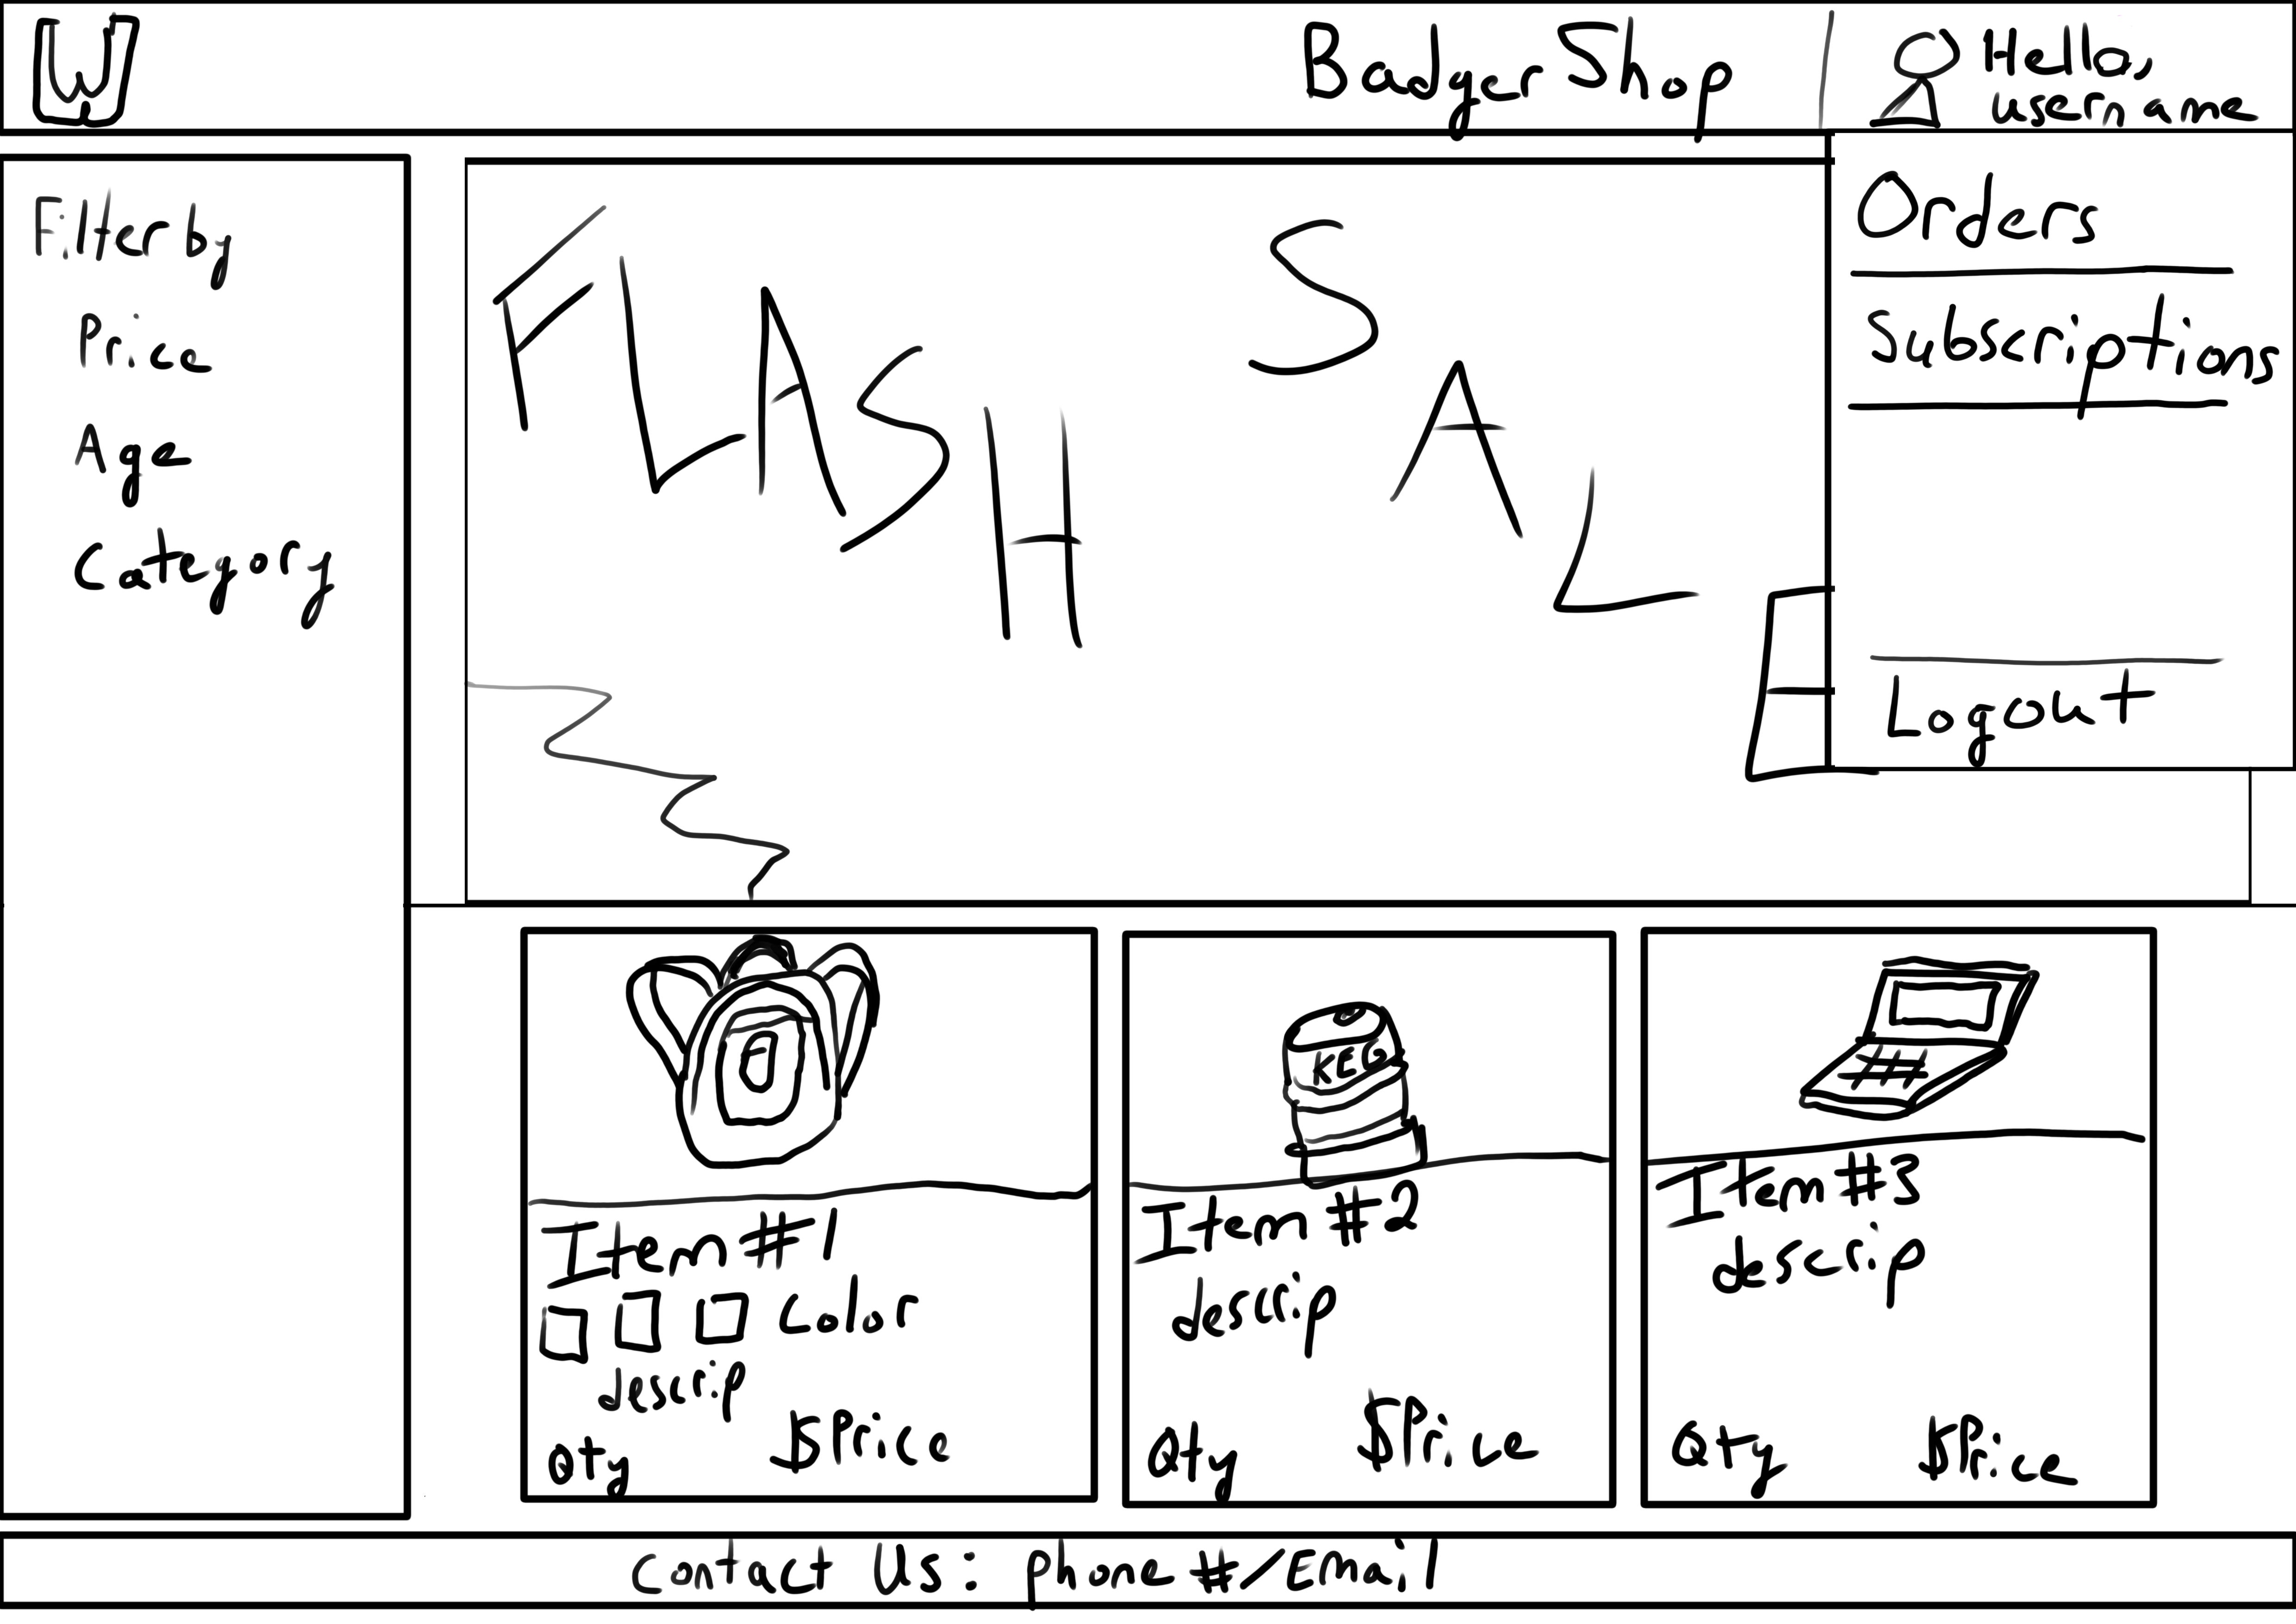 W
Badger Shop
Hello,
username
Filter by
Price
Age
Category
FLASH SALE
Orders
Subscriptions
Logout
KEG
Item #1
Color
descrip
Qty $Price
Item #2
descrip
Qty $Price
Item #3
descrip
Qty $Price
Contact Us: phone #/Email